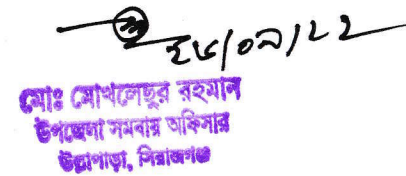 ২৮/০৯/২২
মোঃ মোখলেছুর রহমান
উপজেলা সমবায় অফিসার
উল্লাপাড়া, সিরাজগঞ্জ